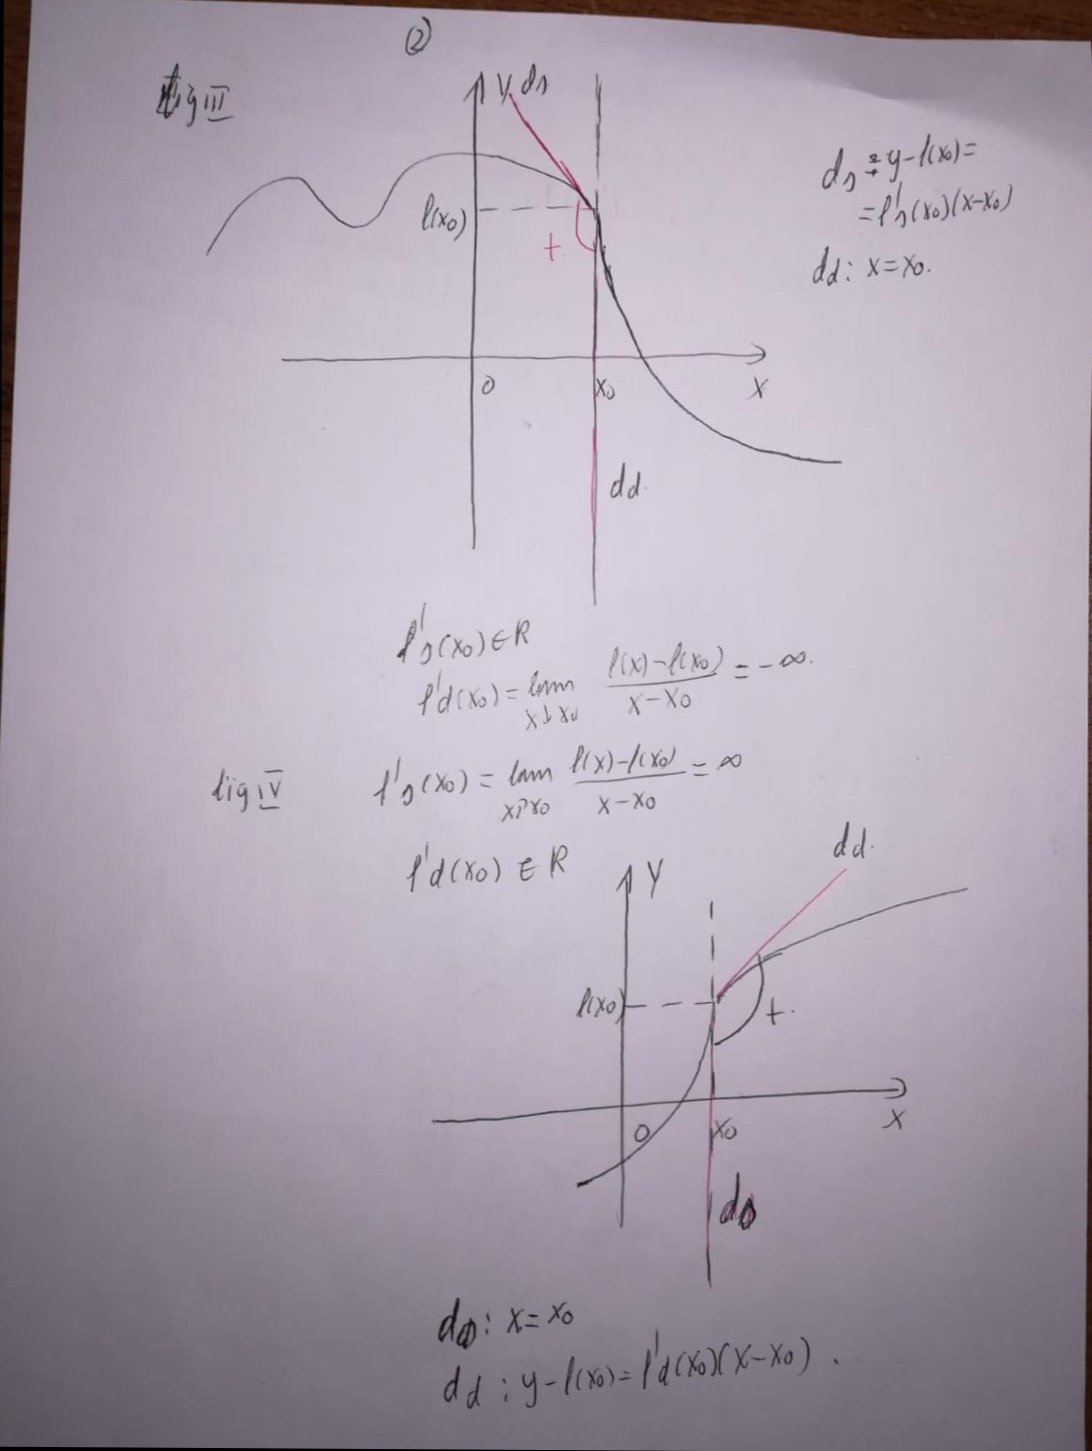 ②
fig III
y ds
ds : y-f(x0)=
=f's(x0)(x-x0)
dd: x=x0.
f(x0)
t
0
x0
x
dd.
f's(x0)∈R
f'd(x0)=lim x↓x0 f(x)-f(x0)/x-x0 = -∞.
fig IV f's(x0) = lim x↑x0 f(x)-f(x0)/x-x0 = ∞
f'd(x0) ∈ R
y
dd.
f(x0)
t.
0
x0
x
ds
ds: x=x0
dd : y-f(x0)=f'd(x0)(x-x0) .